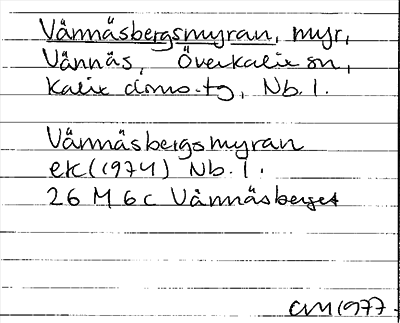 Vännäsbergsmyran, myr,
Vännäs, Överkalix sn,
Kalix doms.tg, Nb. l.
Vännäsbergsmyran
ek(1974) Nb. l.
26 M 6c Vännäsberget
CM 1977.